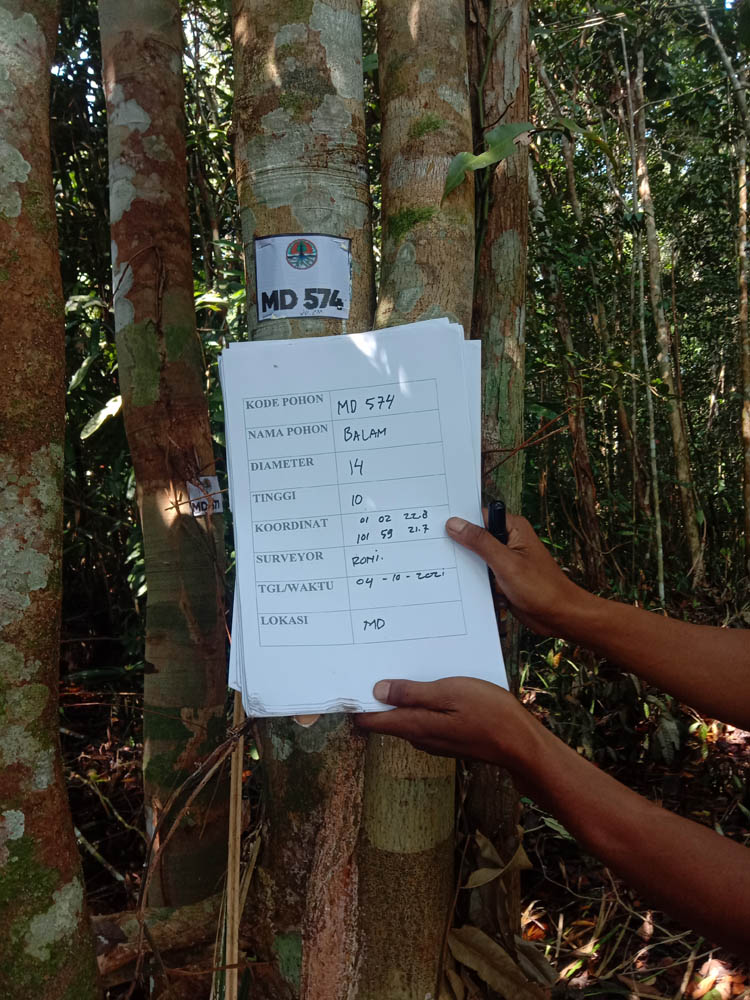 MD 574
KODE POHON MD 574
NAMA POHON BALAM
DIAMETER 14
TINGGI 10
KOORDINAT 01 02 22.8
101 59 21.7
SURVEYOR RONI.
TGL/WAKTU 04 - 10 - 2021
LOKASI MD
MD